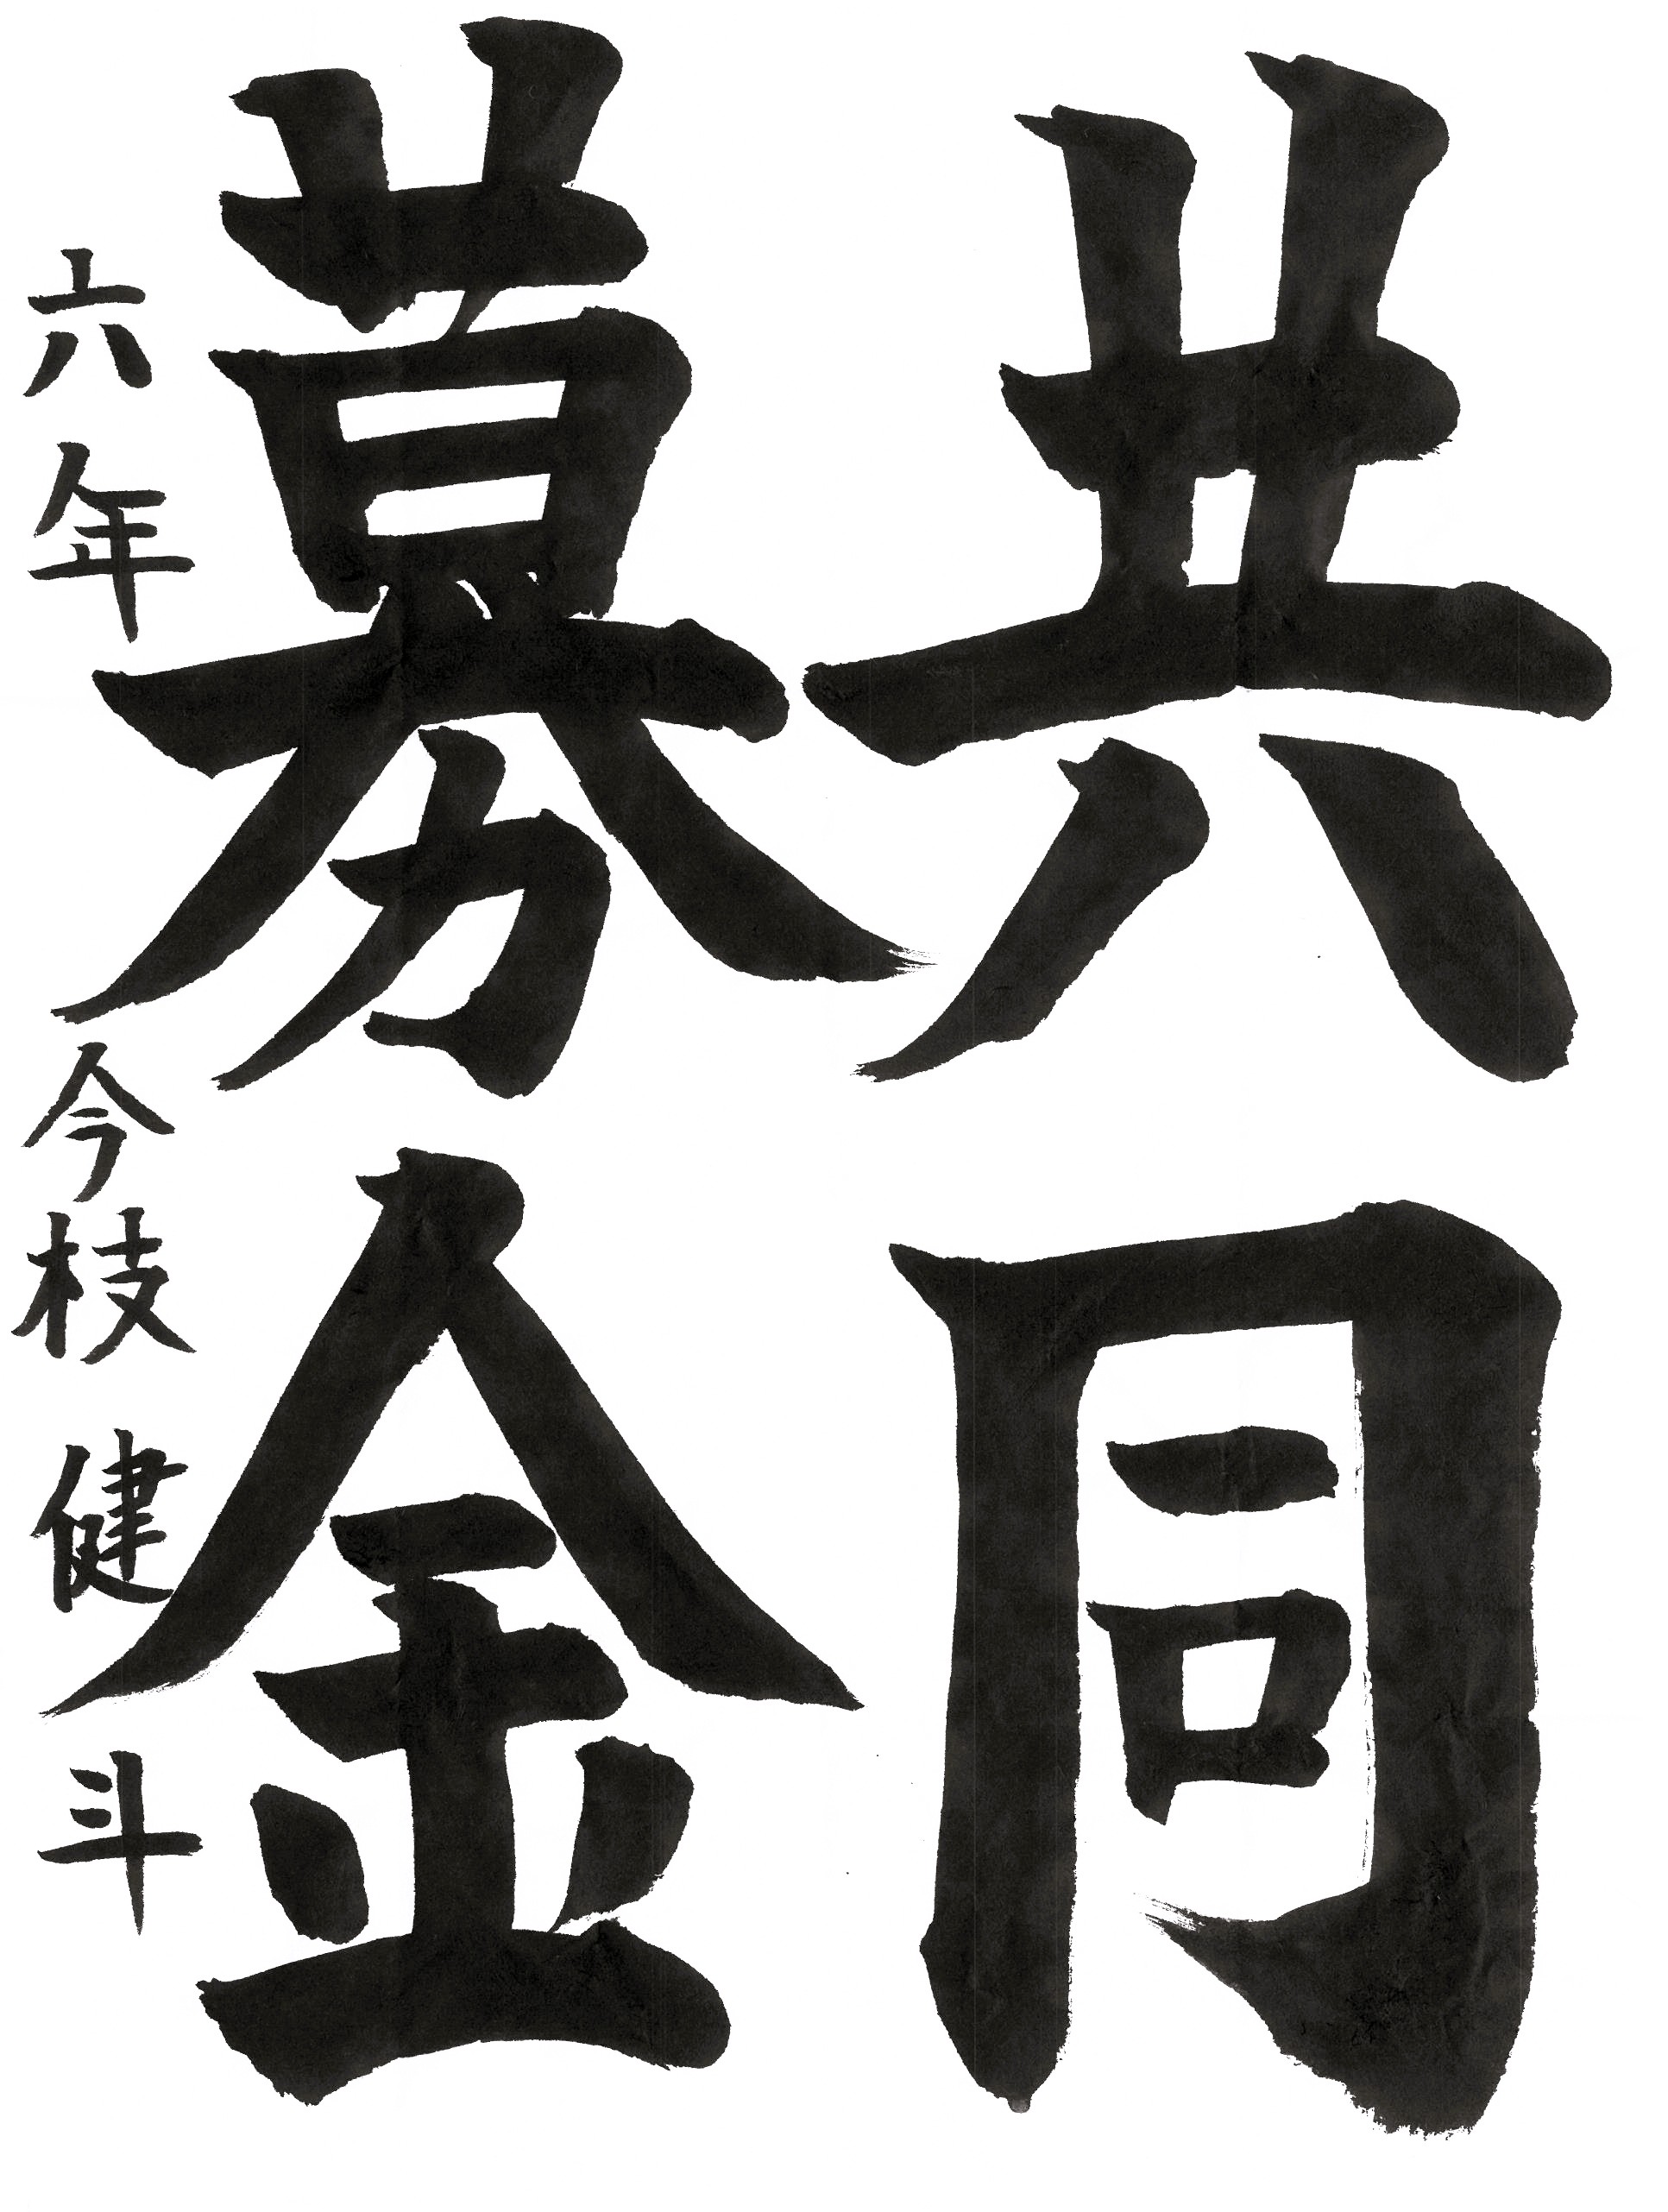 共同
募金
六年 今枝 健斗